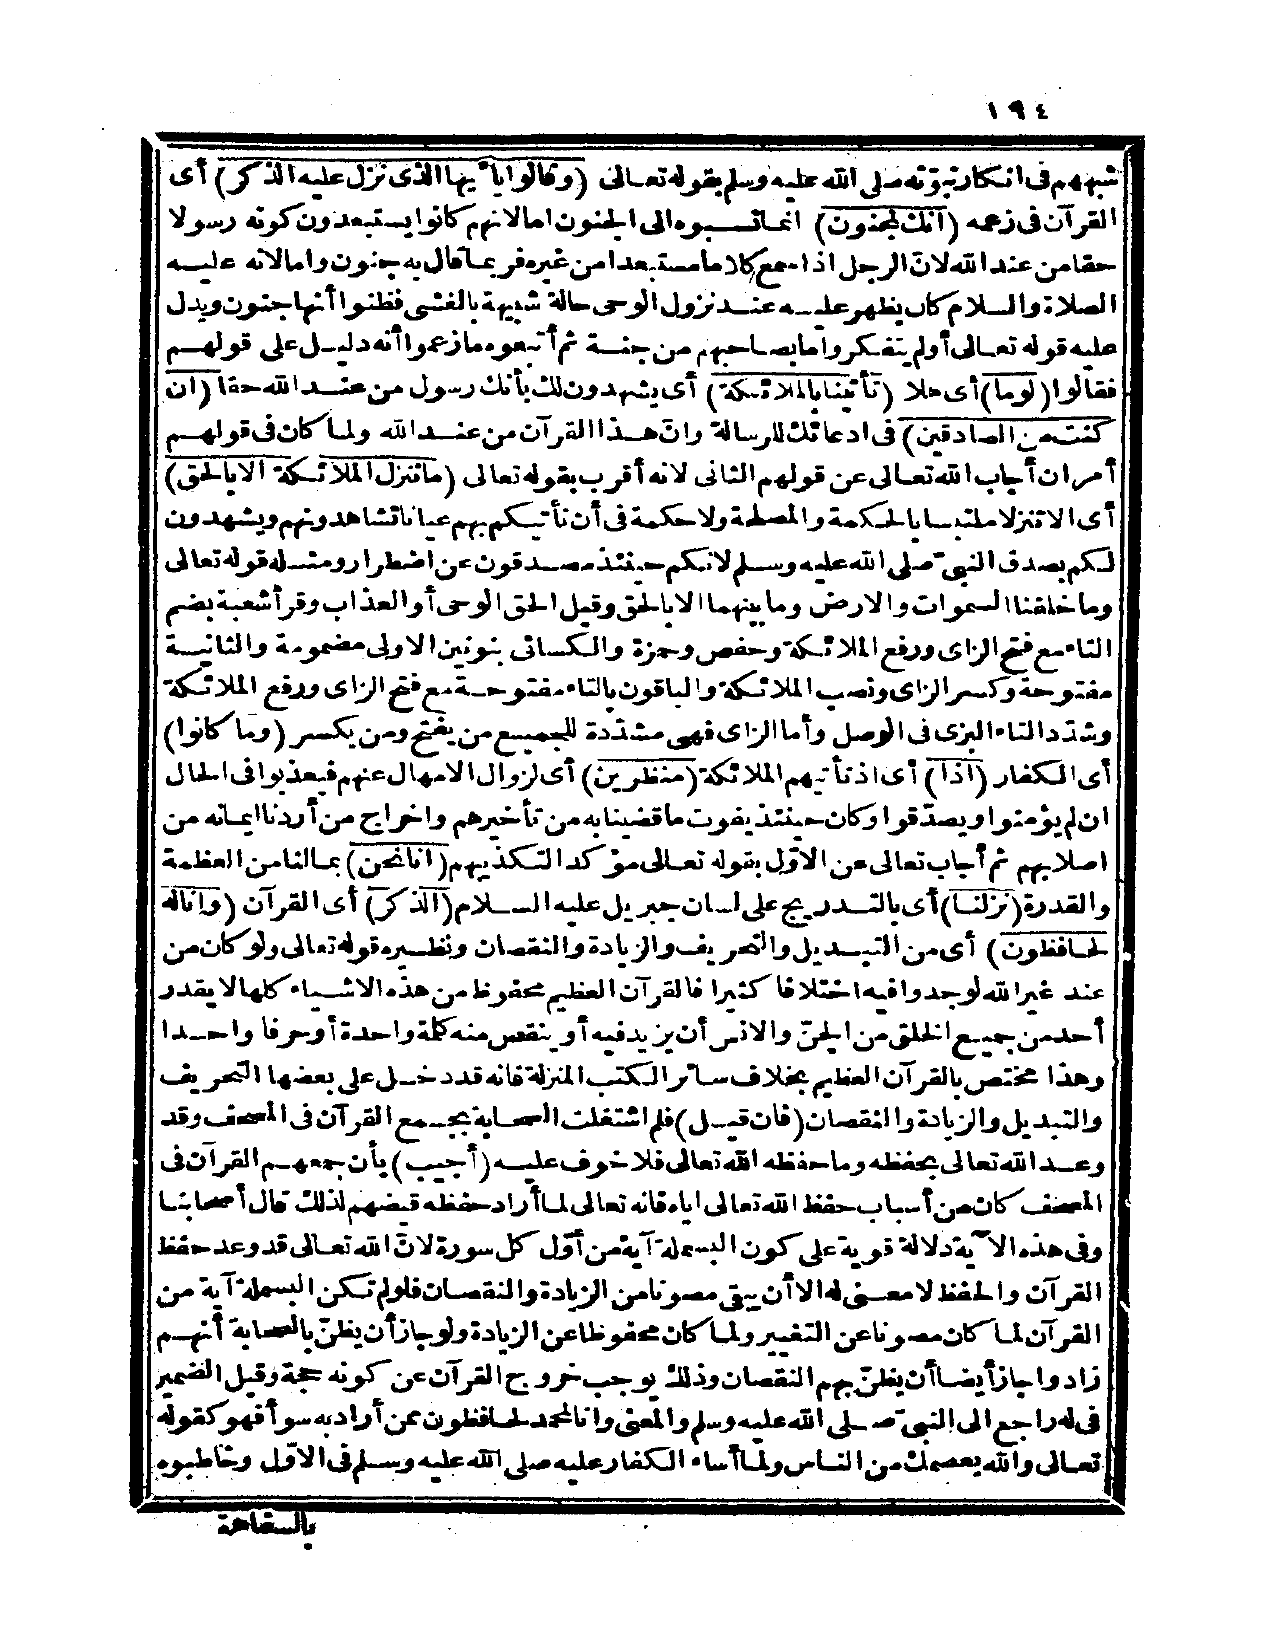 ١٩٤
شبههم فى انكار نبوّته صلى الله عليه وسلم بقوله تعالى (وقالوا يا أيها الذى نزل عليه الذكر) أى
القرآن فى زعمه (انك لمجنون) انما نسبوه الى الجنون امالانهم كانوا يستبعدون كونه رسولا
حقا من عند الله لان الرجل اذا سمع كلاما مستبعدا من غيره فربما قال به جنون وامالانه عليه
الصلاة والسلام كان يظهر عليه عند نزول الوحى حالة شبيهة بالغشى فظنوا أنها جنون ويدل
عليه قوله تعالى أولم يتفكروا ما بصاحبهم من جنة ثم أتبعوه ما زعموا أنه دليل على قولهم
فقالوا (لوما) أى هلا (تأتينا بالملائكة) أى يشهدون لك بأنك رسول من عند الله حقا (ان
كنت من الصادقين) فى ادعائك للرسالة وانّ هذا القرآن من عند الله ولما كان فى قولهم
أمران أجاب الله تعالى عن قولهم الثانى لانه أقرب بقوله تعالى (ما تنزل الملائكة الا بالحق)
أى الا تنزلا ملتبسا بالحكمة والمصلحة ولا حكمة فى أن تأتيكم بهم عيانا تشاهدونهم ويشهدون
لكم بصدق النبىّ صلى الله عليه وسلم لانكم حينئذ مصدقون عن اضطرار ومثله قوله تعالى
وما خلقنا السموات والارض وما بينهما الا بالحق وقيل الحق الوحى أو العذاب وقرأ شعبة بضم
التاء مع فتح الزاى ورفع الملائكة وحفص وحمزة والكسائى بنونين الاولى مضمومة والثانية
مفتوحة وكسر الزاى ونصب الملائكة والباقون بالتاء مفتوحة مع فتح الزاى ورفع الملائكة
وشدّد التاء البزى فى الوصل وأما الزاى فهى مشدّدة للجميع من يفتح ومن يكسر (وما كانوا)
أى الكفار (اذا) أى اذ تأتيهم الملائكة (منظرين) أى لزوال الامهال عنهم فيعذبوا فى الحال
ان لم يؤمنوا ويصدّقوا وكان حينئذ يفوت ما قضينا به من تأخيرهم واخراج من أردنا ايمانه من
اصلابهم ثم أجاب تعالى عن الاوّل بقوله تعالى مؤكدا لتكذيبهم (انا نحن) بما لنا من العظمة
والقدرة (نزلنا) أى بالتدريج على لسان جبريل عليه السلام (الذكر) أى القرآن (وانا له
لحافظون) أى من التبديل والتحريف والزيادة والنقصان ونظيره قوله تعالى ولو كان من
عند غير الله لوجدوا فيه اختلافا كثيرا فالقرآن العظيم محفوظ من هذه الاشياء كلها لا يقدر
أحد من جميع الخلق من الجنّ والانس أن يزيد فيه أو ينقص منه كلمة واحدة أو حرفا واحدا
وهذا مختص بالقرآن العظيم بخلاف سائر الكتب المنزلة فانه قد دخل على بعضها التحريف
والتبديل والزيادة والنقصان (فان قيل) فلم اشتغلت الصحابة بجمع القرآن فى المصحف وقد
وعد الله تعالى بحفظه وما حفظه الله تعالى فلا خوف عليه (أجيب) بأن جمعهم القرآن فى
المصحف كان من أسباب حفظ الله تعالى اياه فانه تعالى لما أراد حفظه قيضهم لذلك قال أصحابنا
وفى هذه الآية دلالة قوية على كون البسملة آية من أوّل كل سورة لانّ الله تعالى قد وعد حفظ
القرآن والحفظ لا معنى له الا أن يبقى مصونا من الزيادة والنقصان فلو لم تكن البسملة آية من
القرآن لما كان مصونا عن التغيير ولما كان محفوظا عن الزيادة ولو جاز أن يظنّ بالصحابة أنهم
زادوا جاز أيضا أن يظنّ بهم النقصان وذلك يوجب خروج القرآن عن كونه حجة وقيل الضمير
فى له راجع الى النبىّ صلى الله عليه وسلم والمعنى وانا لمحمد لحافظون ممن أراد به سوأ فهو كقوله
تعالى والله يعصمك من الناس ولما أساء الكفار عليه صلى الله عليه وسلم فى الاوّل وخاطبوه
بالسفاهة